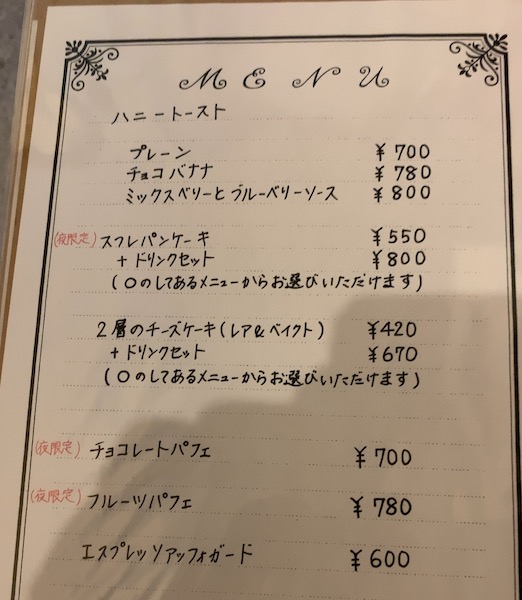 MENU
ハニートースト
プレーン ¥700
チョコバナナ ¥780
ミックスベリーとブルーベリーソース ¥800
(夜限定) スフレパンケーキ ¥550
+ドリンクセット ¥800
(〇のしてあるメニューからお選びいただけます)
2層のチーズケーキ(レア&ベイクト) ¥420
+ドリンクセット ¥670
(〇のしてあるメニューからお選びいただけます)
(夜限定) チョコレートパフェ ¥700
(夜限定) フルーツパフェ ¥780
エスプレッソアッフォガード ¥600